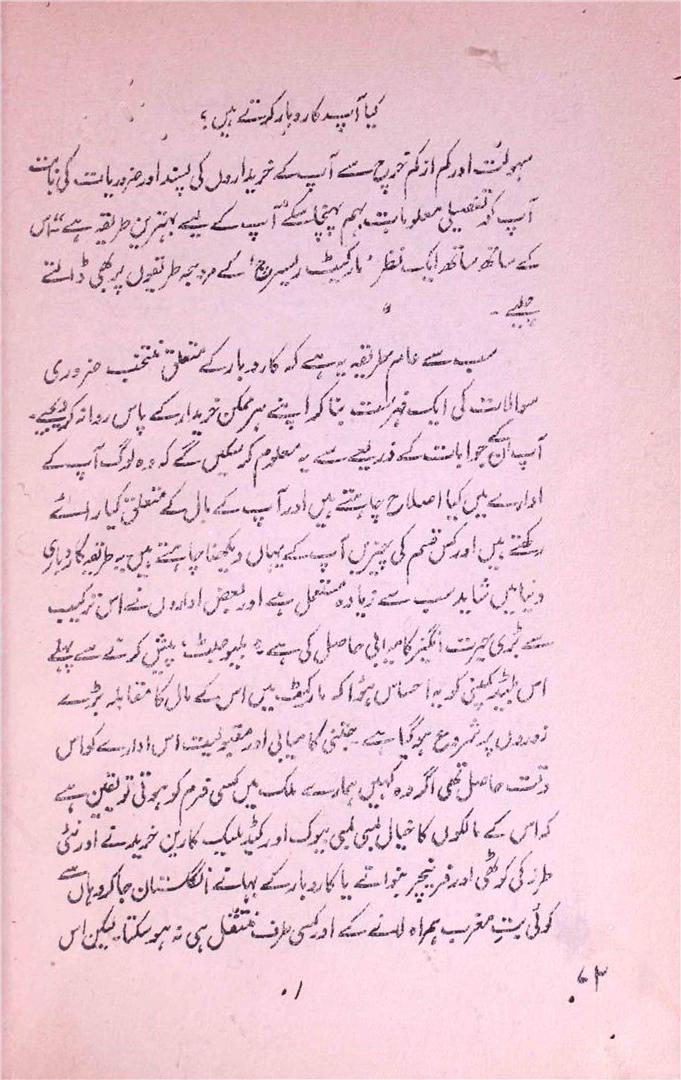 کیا آپ کاروبار کرتے ہیں؟
سہولت اور کم از کم خرچ سے آپ کے خریداروں کی پسند اور ضروریات کی بابت
آپ کو تفصیلی معلومات بہم پہنچا سکے" آپ کے لیے بہترین طریقہ ہے" اس
کے ساتھ ساتھ ایک نظر 'مارکیٹ ریسرچ' کے مروجہ طریقوں پر بھی ڈالتے
چلیے۔
سب سے عام طریقہ یہ ہے کہ کاروبار کے متعلق منتخب ضروری
سوالات کی ایک فہرست بنا کر اپنے ہر ممکن خریدار کے پاس روانہ کر دیجیے۔
آپ ان کے جوابات کے ذریعے سے یہ معلوم کر سکیں گے کہ وہ لوگ آپ کے
ادارے میں کیا اصلاح چاہتے ہیں اور آپ کے مال کے متعلق کیا رائے
رکھتے ہیں اور کس قسم کی چیزیں آپ کے یہاں دیکھنا چاہتے ہیں یہ طریقہ کاروباری
دنیا میں شاید سب سے زیادہ مستعمل ہے اور بعض اداروں نے اس ترکیب
سے بڑی حیرت انگیز کامیابی حاصل کی ہے۔ پیش کرنے سے پہلے
اس لمیٹڈ کمپنی کو یہ احساس ہوا کہ مارکیٹ میں اس کے مال کا مقابلہ بڑے
زوروں پر شروع ہوگیا ہے۔ جتنی کامیابی اور مقبولیت اس ادارے کو اس
وقت حاصل تھی اگر وہ کہیں ہمارے ملک میں کسی فرم کو ہوتی تو یقین ہے
کہ اس کے مالکوں کا خیال لمبی لمبی بیوک اور کیڈیلیک کاریں خریدنے اور نئی
طرز کی کوٹھی اور فرنیچر بنوانے یا کاروبار کے بہانے انگلستان جا کر وہاں سے
کوئی بتِ مغرب ہمراہ لانے کے اور کسی طرف منتقل ہی نہ ہو سکتا۔ لیکن اس
۷۳